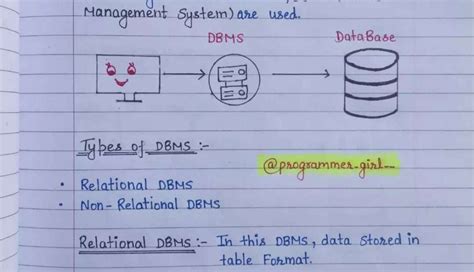 Management System) are used.
DBMS DataBase
Types of DBMS :-
@programmer_girl__
• Relational DBMS
• Non-Relational DBMS
Relational DBMS :- In this DBMS, data stored in
table Format.